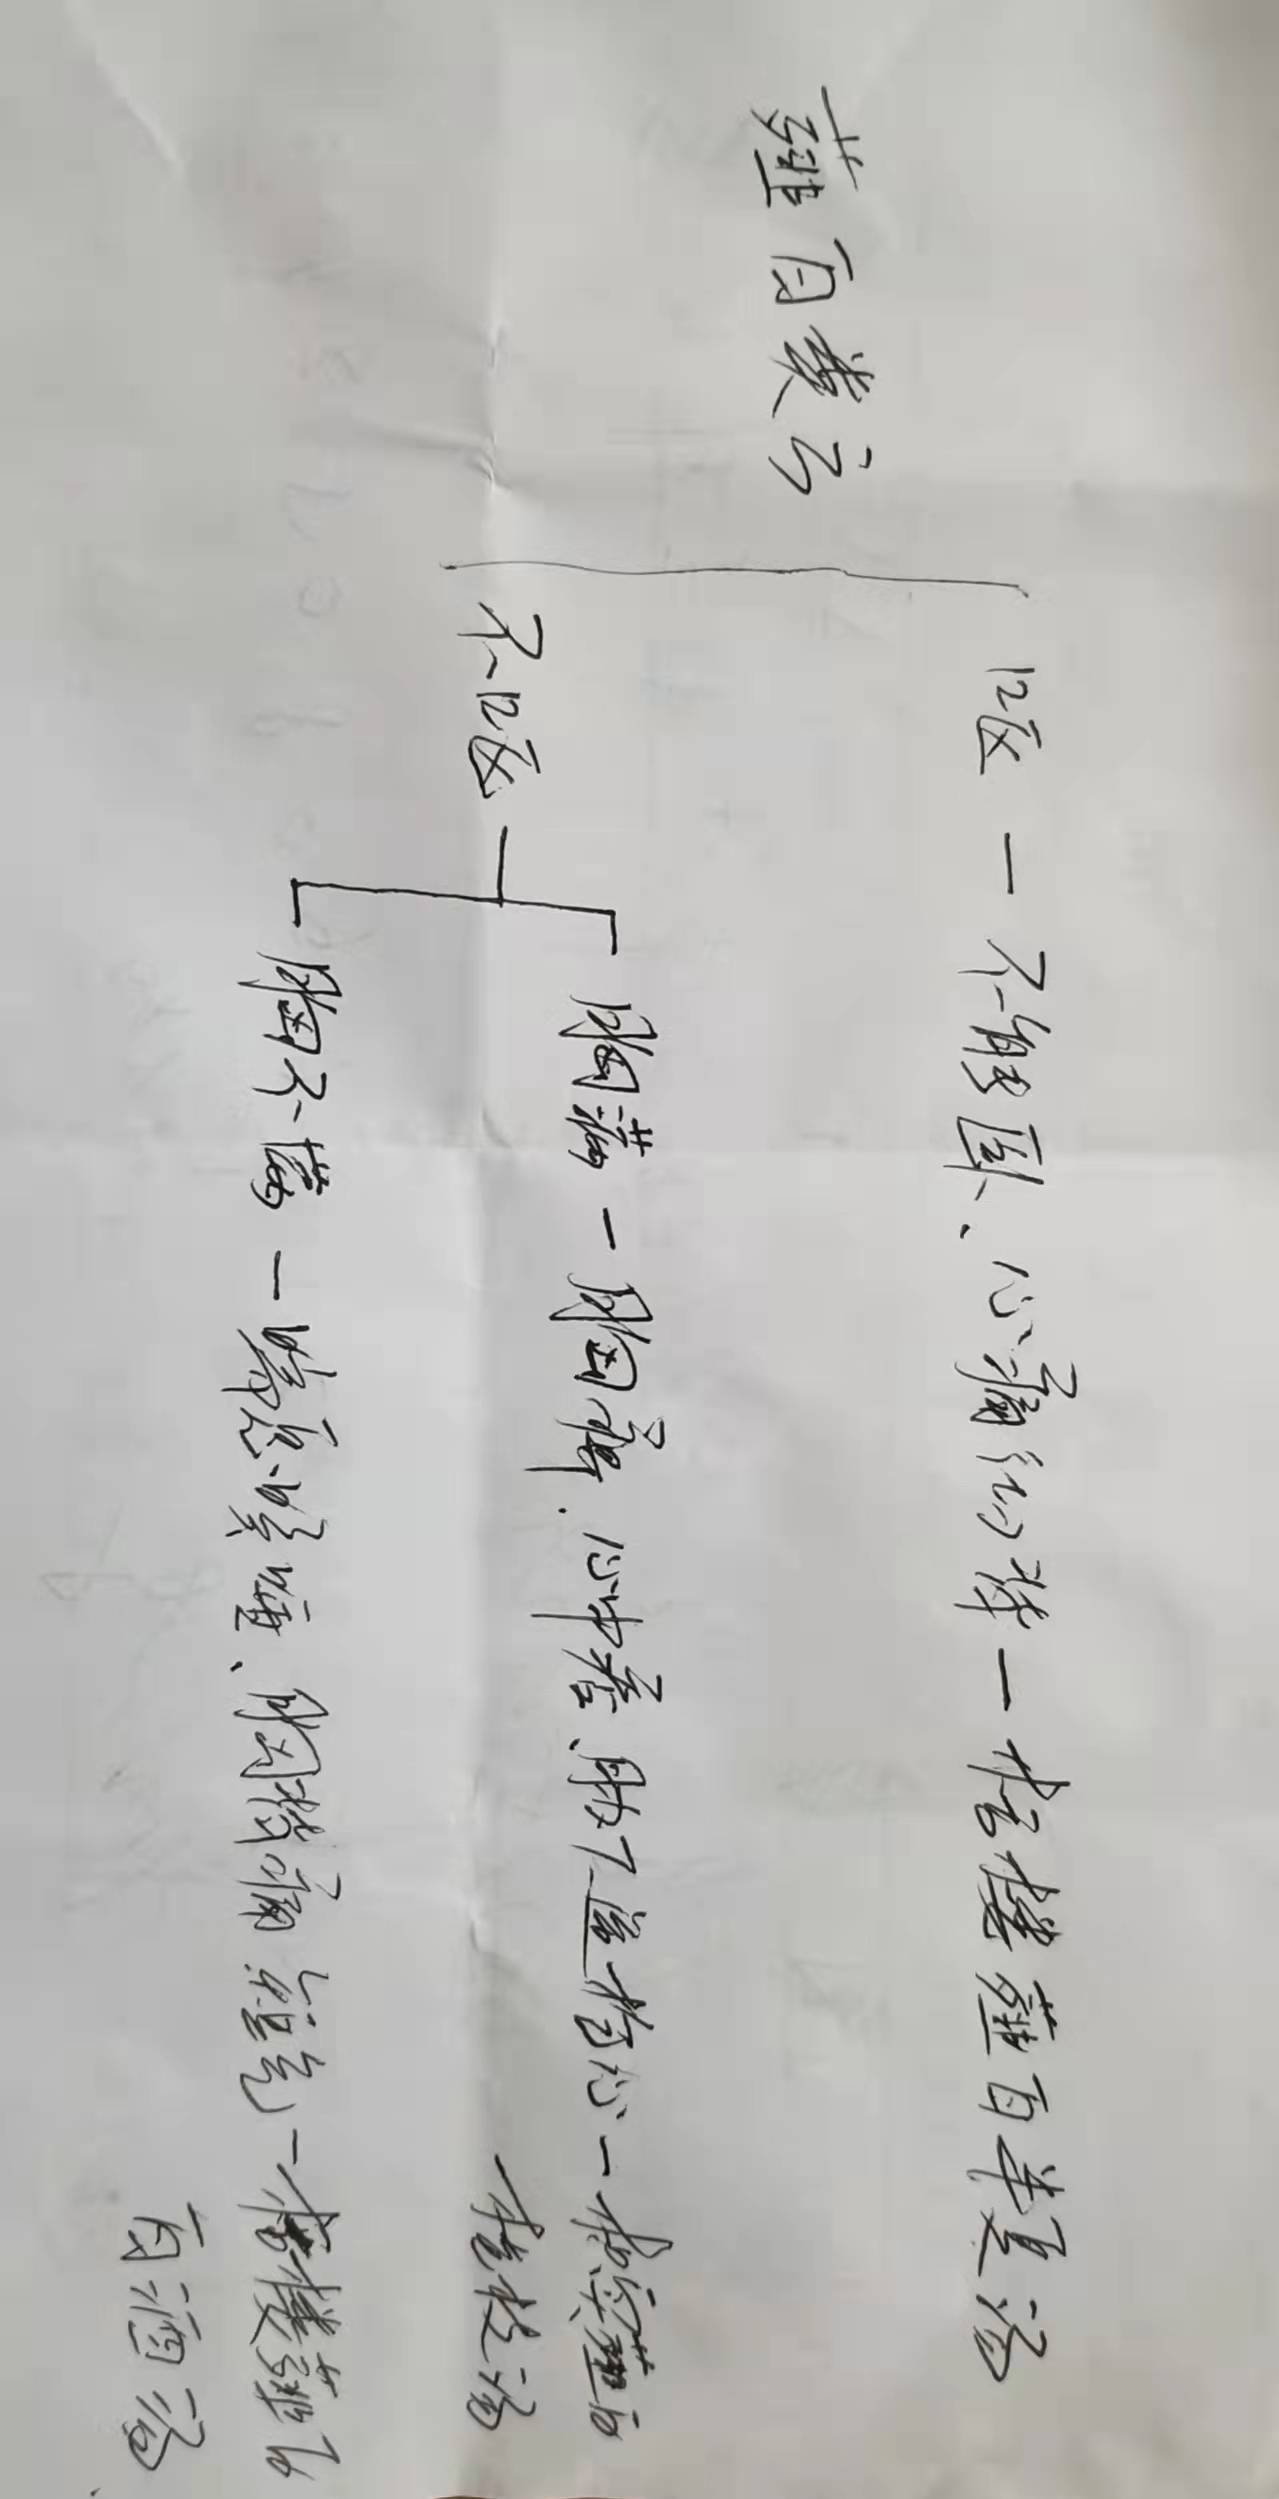 薤白类方
咳—不能卧、心痛彻背—栝楼薤白半夏汤
不咳
胸满—胸痹、心中痞、胁下逆抢心—枳实薤白
桂枝汤
胸不满—喘息咳唾、胸背痛短气—栝楼薤
白酒汤